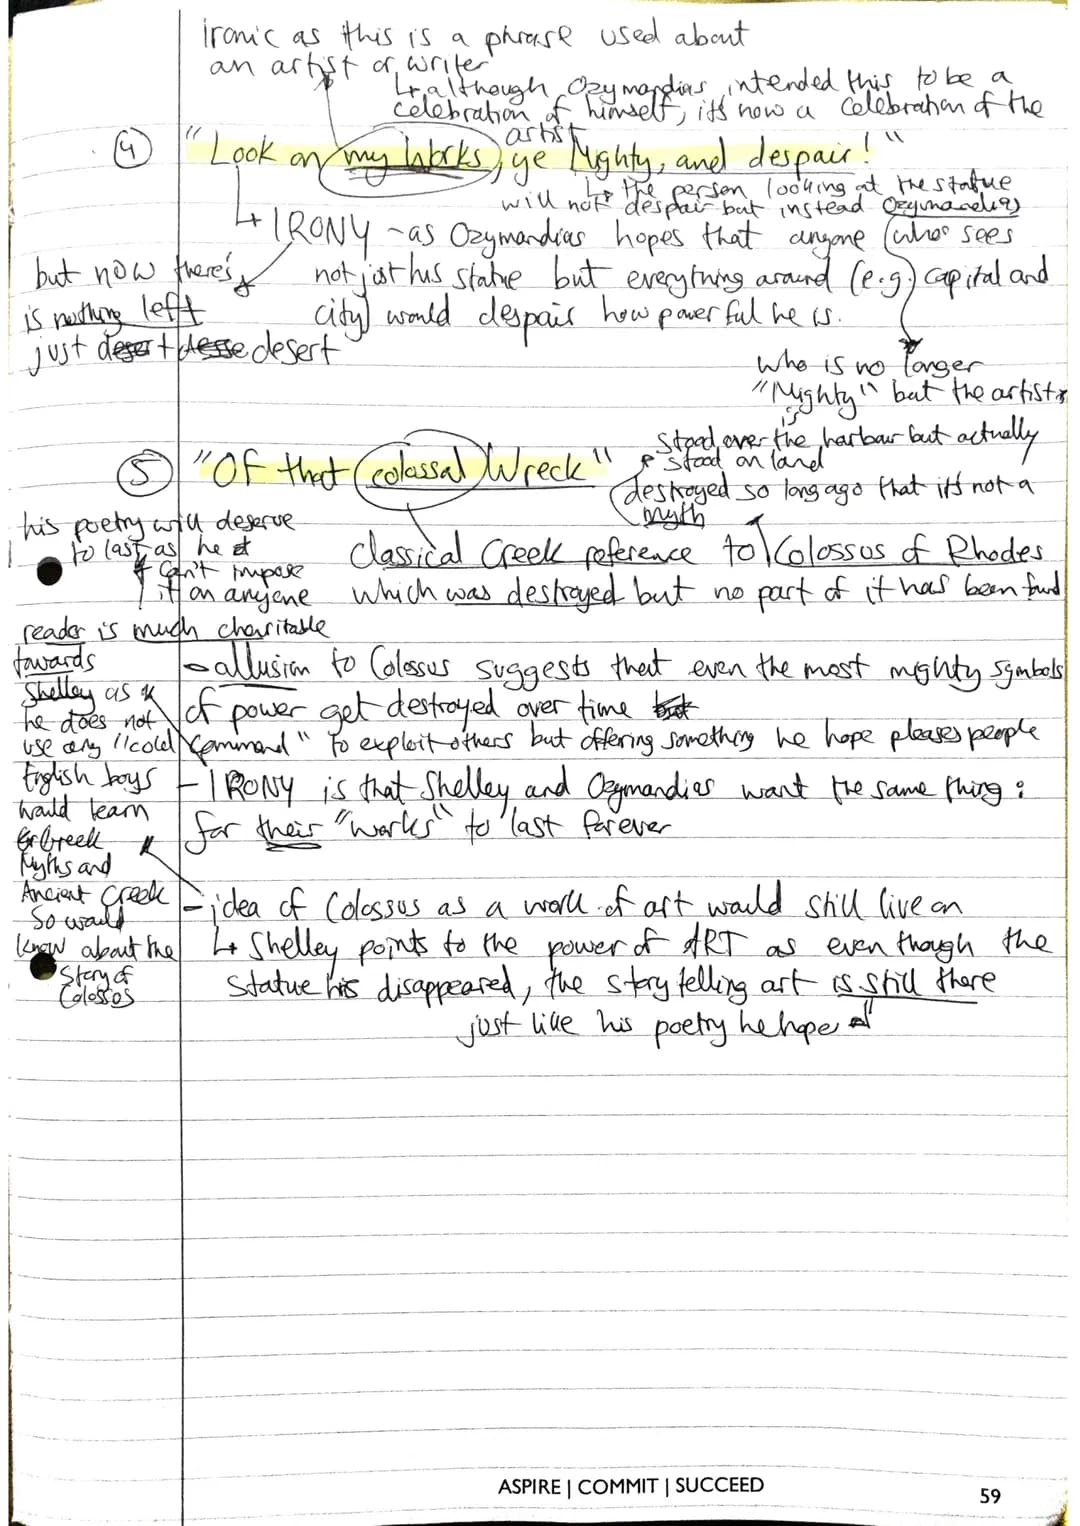 ironic as this is a phrase used about
an artist or writer
↳ although Ozymandias intended this to be a
celebration of himself, it's now a celebration of the
artist
④ "Look on my Works, ye Mighty, and despair!"
↳ the person looking at the statue
will not despair but instead Ozymandias
↳ IRONY - as Ozymandias hopes that anyone who sees
not just his statue but everything around (e.g. capital and
city) would despair how powerful he is.
but now there's
is nothing left
just desert desert
who is no longer
"Mighty" but the artist
is
stood over the harbour but actually
stood on land
⑤ "Of that colossal Wreck"
destroyed so long ago that it's not a
myth
Classical Greek reference to Colossus of Rhodes
which was destroyed but no part of it has been found
his poetry will deserve
to last as he
can't impose
it on anyone
reader is much charitable
towards
Shelley as
he does not
use any "cold command" to exploit others but offering something he hope pleases people
- allusion to Colossus suggests that even the most mighty symbols
of power get destroyed over time but
- IRONY is that Shelley and Ozymandias want the same thing:
for their "works" to last forever
English boys
would learn
Greek
Myths and
Ancient Greek
so would
know about the
story of
Colossos
- idea of Colossus as a work of art would still live on
↳ Shelley points to the power of ART as even though the
statue his disappeared, the story telling art is still there
just like his poetry he hope
ASPIRE | COMMIT | SUCCEED
59